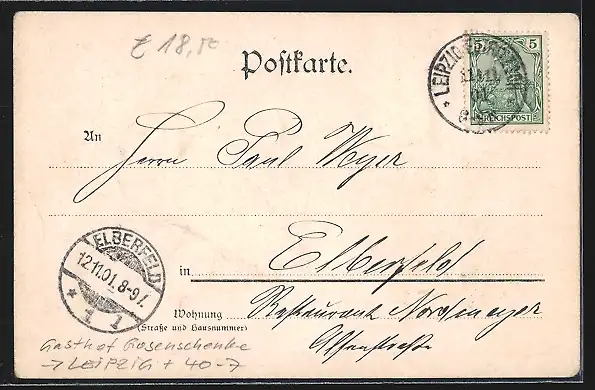 £ 18,-
Postkarte.
5 5
REICHSPOST
LEIPZIG
An
Herrn Paul Meyer
ELBERFELD
12.11.01. 8-9V.
* 1 1
in Elberfeld
Wohnung Restaurant Nordmeyer
(Straße und Hausnummer)
Gasthof Gosenschenke
→ LEIPZIG + 40-7